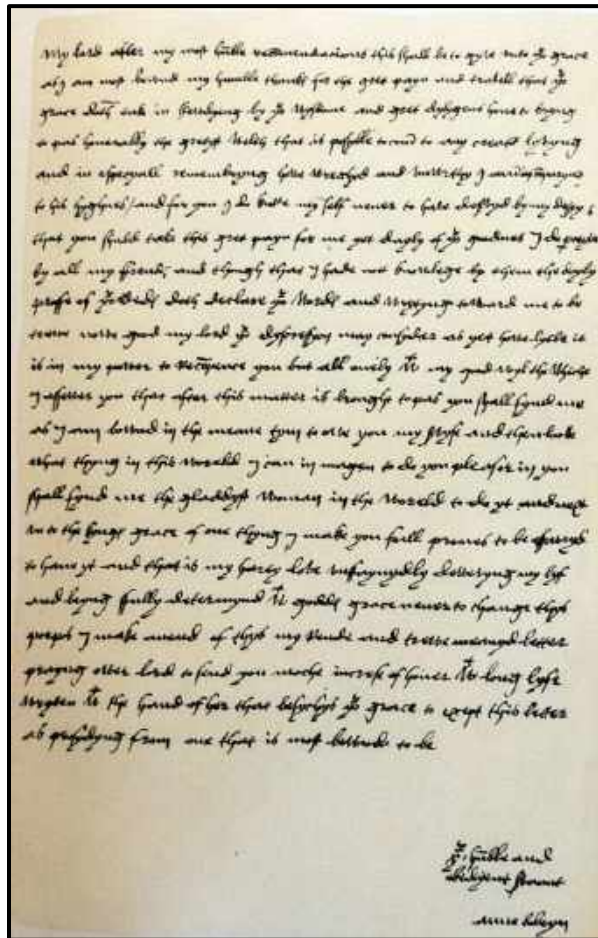 My lord after my most humble recomendacions this shall be to gyve unto yr grace
as I am most bownd my humble thanks for the gret payn and travell that yr
grace doth take in stewdyeng by yr wysdome and gret dylygens howe to bryng
to pas honerably the gretyst welth that is possyble to com to any creatour lyvyng
and in especyall remembryng howe wrecchyd and unwrthy I am in comparyng
to his hyghnes and for you I do knowe my selfe never to have deservyd by my deserts
that you shuld take this gret payn for me yet dayly of yr goodnes I do perceyve
by all my frends and though that I hade not knowlege by them the dayly
proffe of yr deds doth declare yr words and wrytyng toward me to be
trewe nowe good my lord yr dyscressyon may consyder as yet howe lytle it
is in my power to recompence you but all onely wt my good wyl the whiche
I assewer you that after this matter is brought to pas you shall fynd me
as I am bownd in the meane tym to owe you my servyse and then looke
what thyng in this woreld I can inmagen to do you pleasor in you
shall fynd me the gladdyst woman in the woreld to do yt and next
unto the kyngs grace of one thyng I make you full promes to be assuryd
to have yt and that is my harty love unfaynydly deweryng my lyf
and beyng fully determynd wt goddes grace never to change thys
porpos I make anend of thys my reude and trewe meanyd letter
prayng ower lord to send you moche increse of honer wt long lyfe
wrytten wt the hand of her that besychys yr grace to except this letter
as prosydyng from one that is most bownde to be
yr humble and
obedyent servant
anne boleyn